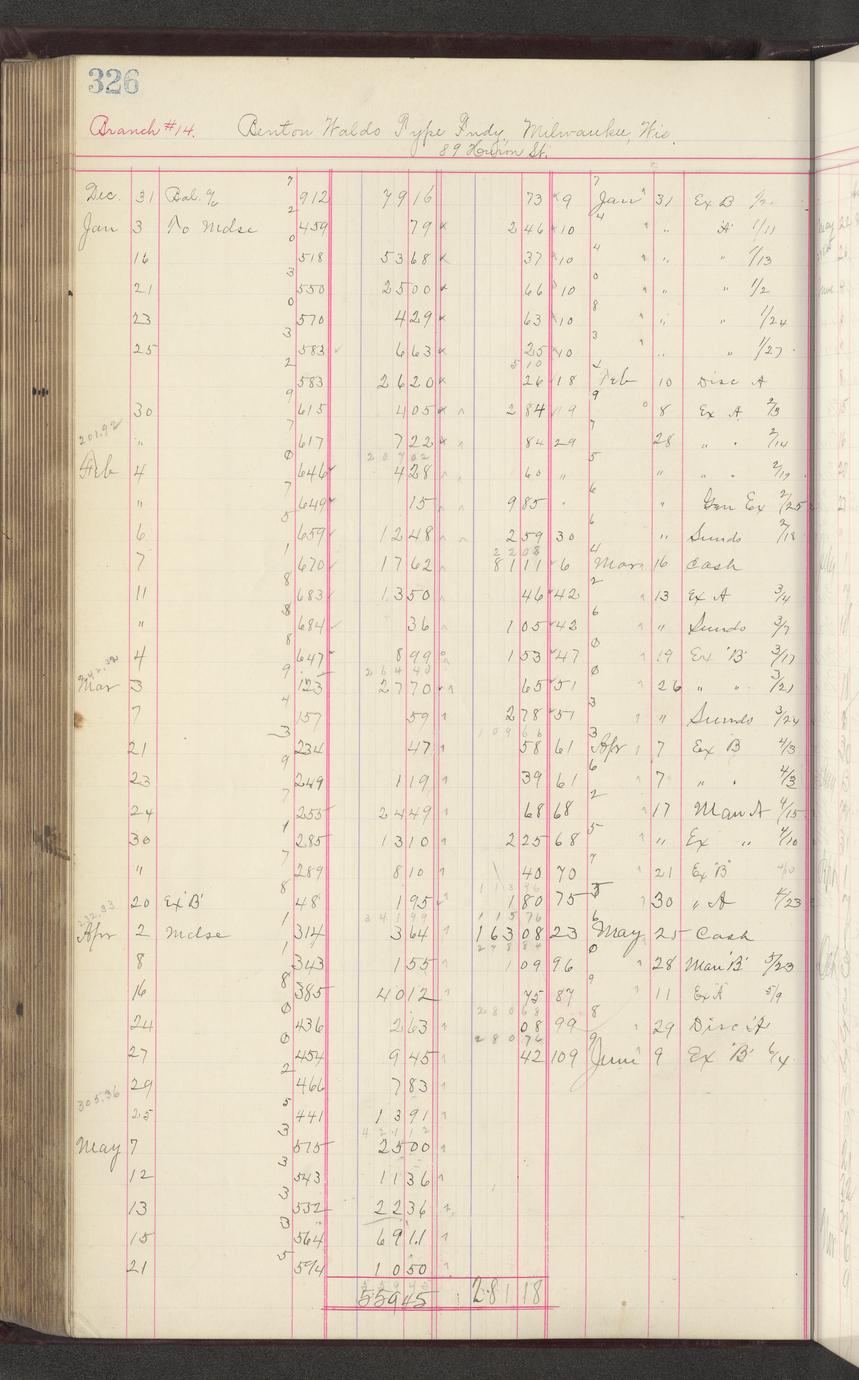 326
Branch #14. Benton Waldo Type Fndy, Milwaukee, Wis.
89 Huron St.
Dec. 31 Bal. 912 79 16 73 9 Jan 31 Ex B
Jan 3 To Mdse 459 79 2 46 10 " " "A" 1/11
16 518 53 68 37 10 " " " 1/13
21 550 25 00 66 10 " " " 1/2
23 570 4 29 63 10 " " " 1/24
25 583 6 63 25 10 " " " 1/27
5 10
583 26 20 26 18 Feb 10 Disc A
30 615 4 05 2 84 19 " 8 Ex A 2/3
201.92
" 617 7 22 84 29 28 " " 2/14
20702
Feb 4 646 4 28 60 " " " " 2/19
" 649 15 9 85 " " Gen Ex 2/25
6 659 12 48 2 59 30 " Sunds 2/18
2208
7 670 17 62 81 11 6 Mar 16 Cash
11 683 13 50 46 42 " 13 Ex A 3/4
" 684 36 1 05 42 " " Sunds 3/7
4 647 8 99 1 53 47 " 19 Ex "B" 3/17
26440
Mar 3 123 27 70 65 51 " 26 " " 3/21
7 157 59 2 78 51 " " Sunds 3/24
10966
21 234 47 58 61 Apr 7 Ex B 4/3
23 249 1 19 39 61 7 " " 4/3
24 255 24 49 68 68 17 Man A 4/15
30 285 13 10 2 25 68 " Ex " 4/10
" 289 8 10 40 70 21 Ex "B"
11396
20 Ex "B" 48 1 95 1 80 75 30 " A 4/23
34199 11576
Apr 2 Mdse 314 3 64 163 08 23 May 25 Cash
27884
8 343 1 55 1 09 96 " 28 Man "B" 5/23
16 385 40 12 75 87 " 11 Ex A 5/9
28068
24 436 2 63 08 99 " 29 Disc "A"
28076
27 454 9 45 42 109 June 9 Ex "B" 6/4
29 466 7 83
305.36
25 441 13 91
42112
May 7 575 25 00
12 543 11 36
13 532 22 36
15 564 69 11
21 594 10 50
559 45 281 18